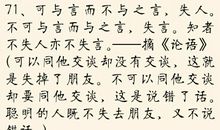 71、可与言而不与之言，失人。
不可与言而与之言，失言。知者
不失人亦不失言。——摘《论语》
(可以同他交谈却没有交谈，这就
是失掉了朋友。不可以同他交谈
却要同他交谈，这是说错了话。
聪明的人既不失去朋友，又不说
错话。)